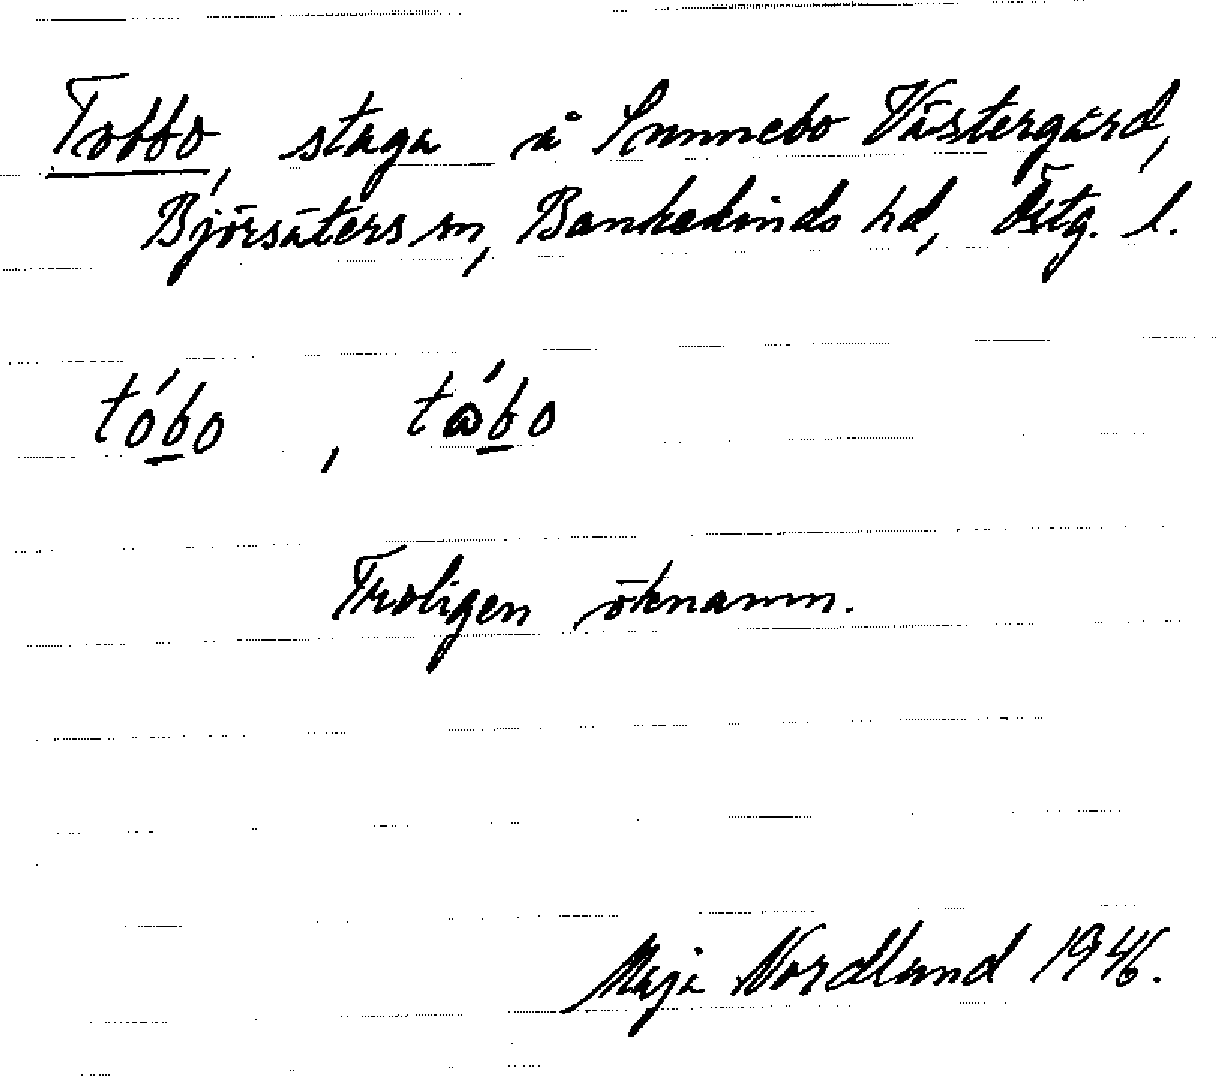 Tobbo, stuga å Sunnebo Västergård,
Björsäters sn, Bankekinds hd, Östg. l.
tóbo, tåbo
Troligen öknamn.
Maja Nordlund 1946.